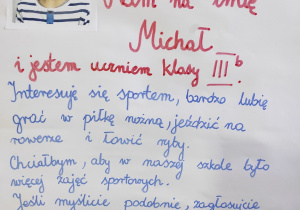 Mam na imię
Michał
i jestem uczniem klasy III b
Interesuję się sportem, bardzo lubię
grać w piłkę nożną, jeździć na
rowerze i łowić ryby.
Chciałbym, aby w naszej szkole było
więcej zajęć sportowych.
Jeśli myślicie podobnie, zagłosujcie